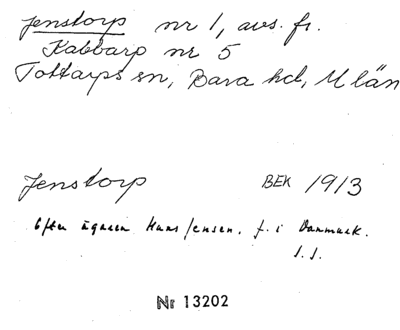 Jenstorp nr 1, avs. fr.
Kabbarp nr 5
Tottarps sn, Bara hd, M län
Jenstorp BEK 1913
Efter ägaren Hans Jensen. f. i Danmark.
S. S.
Nr 13202